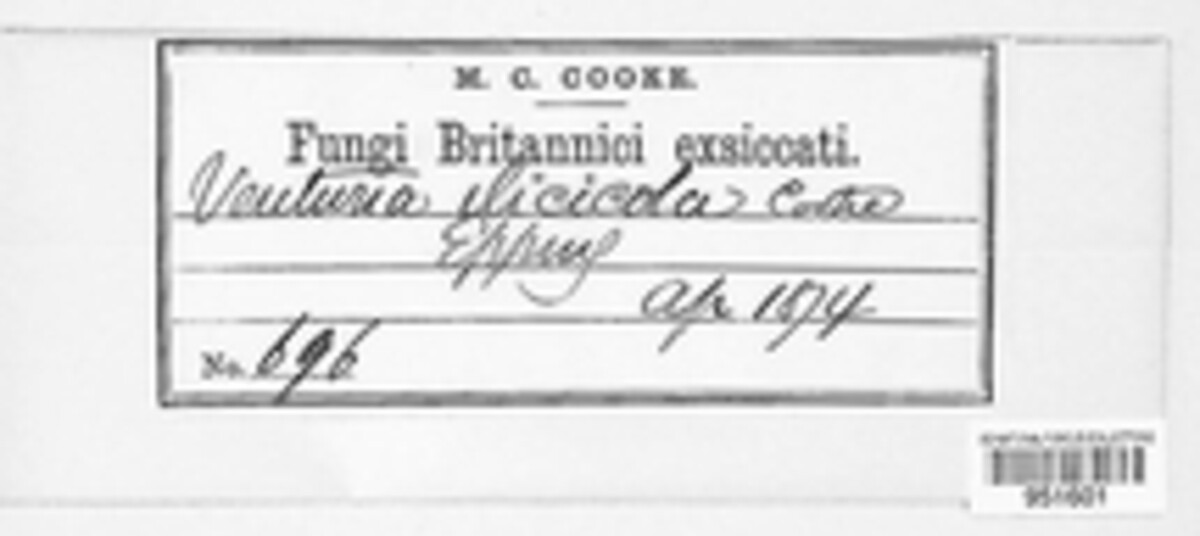 M. C. COOKE.
Fungi Britannici exsiccati.
Venturia ilicicola Cooke
Epping
Ap 1874
No. 696
951601